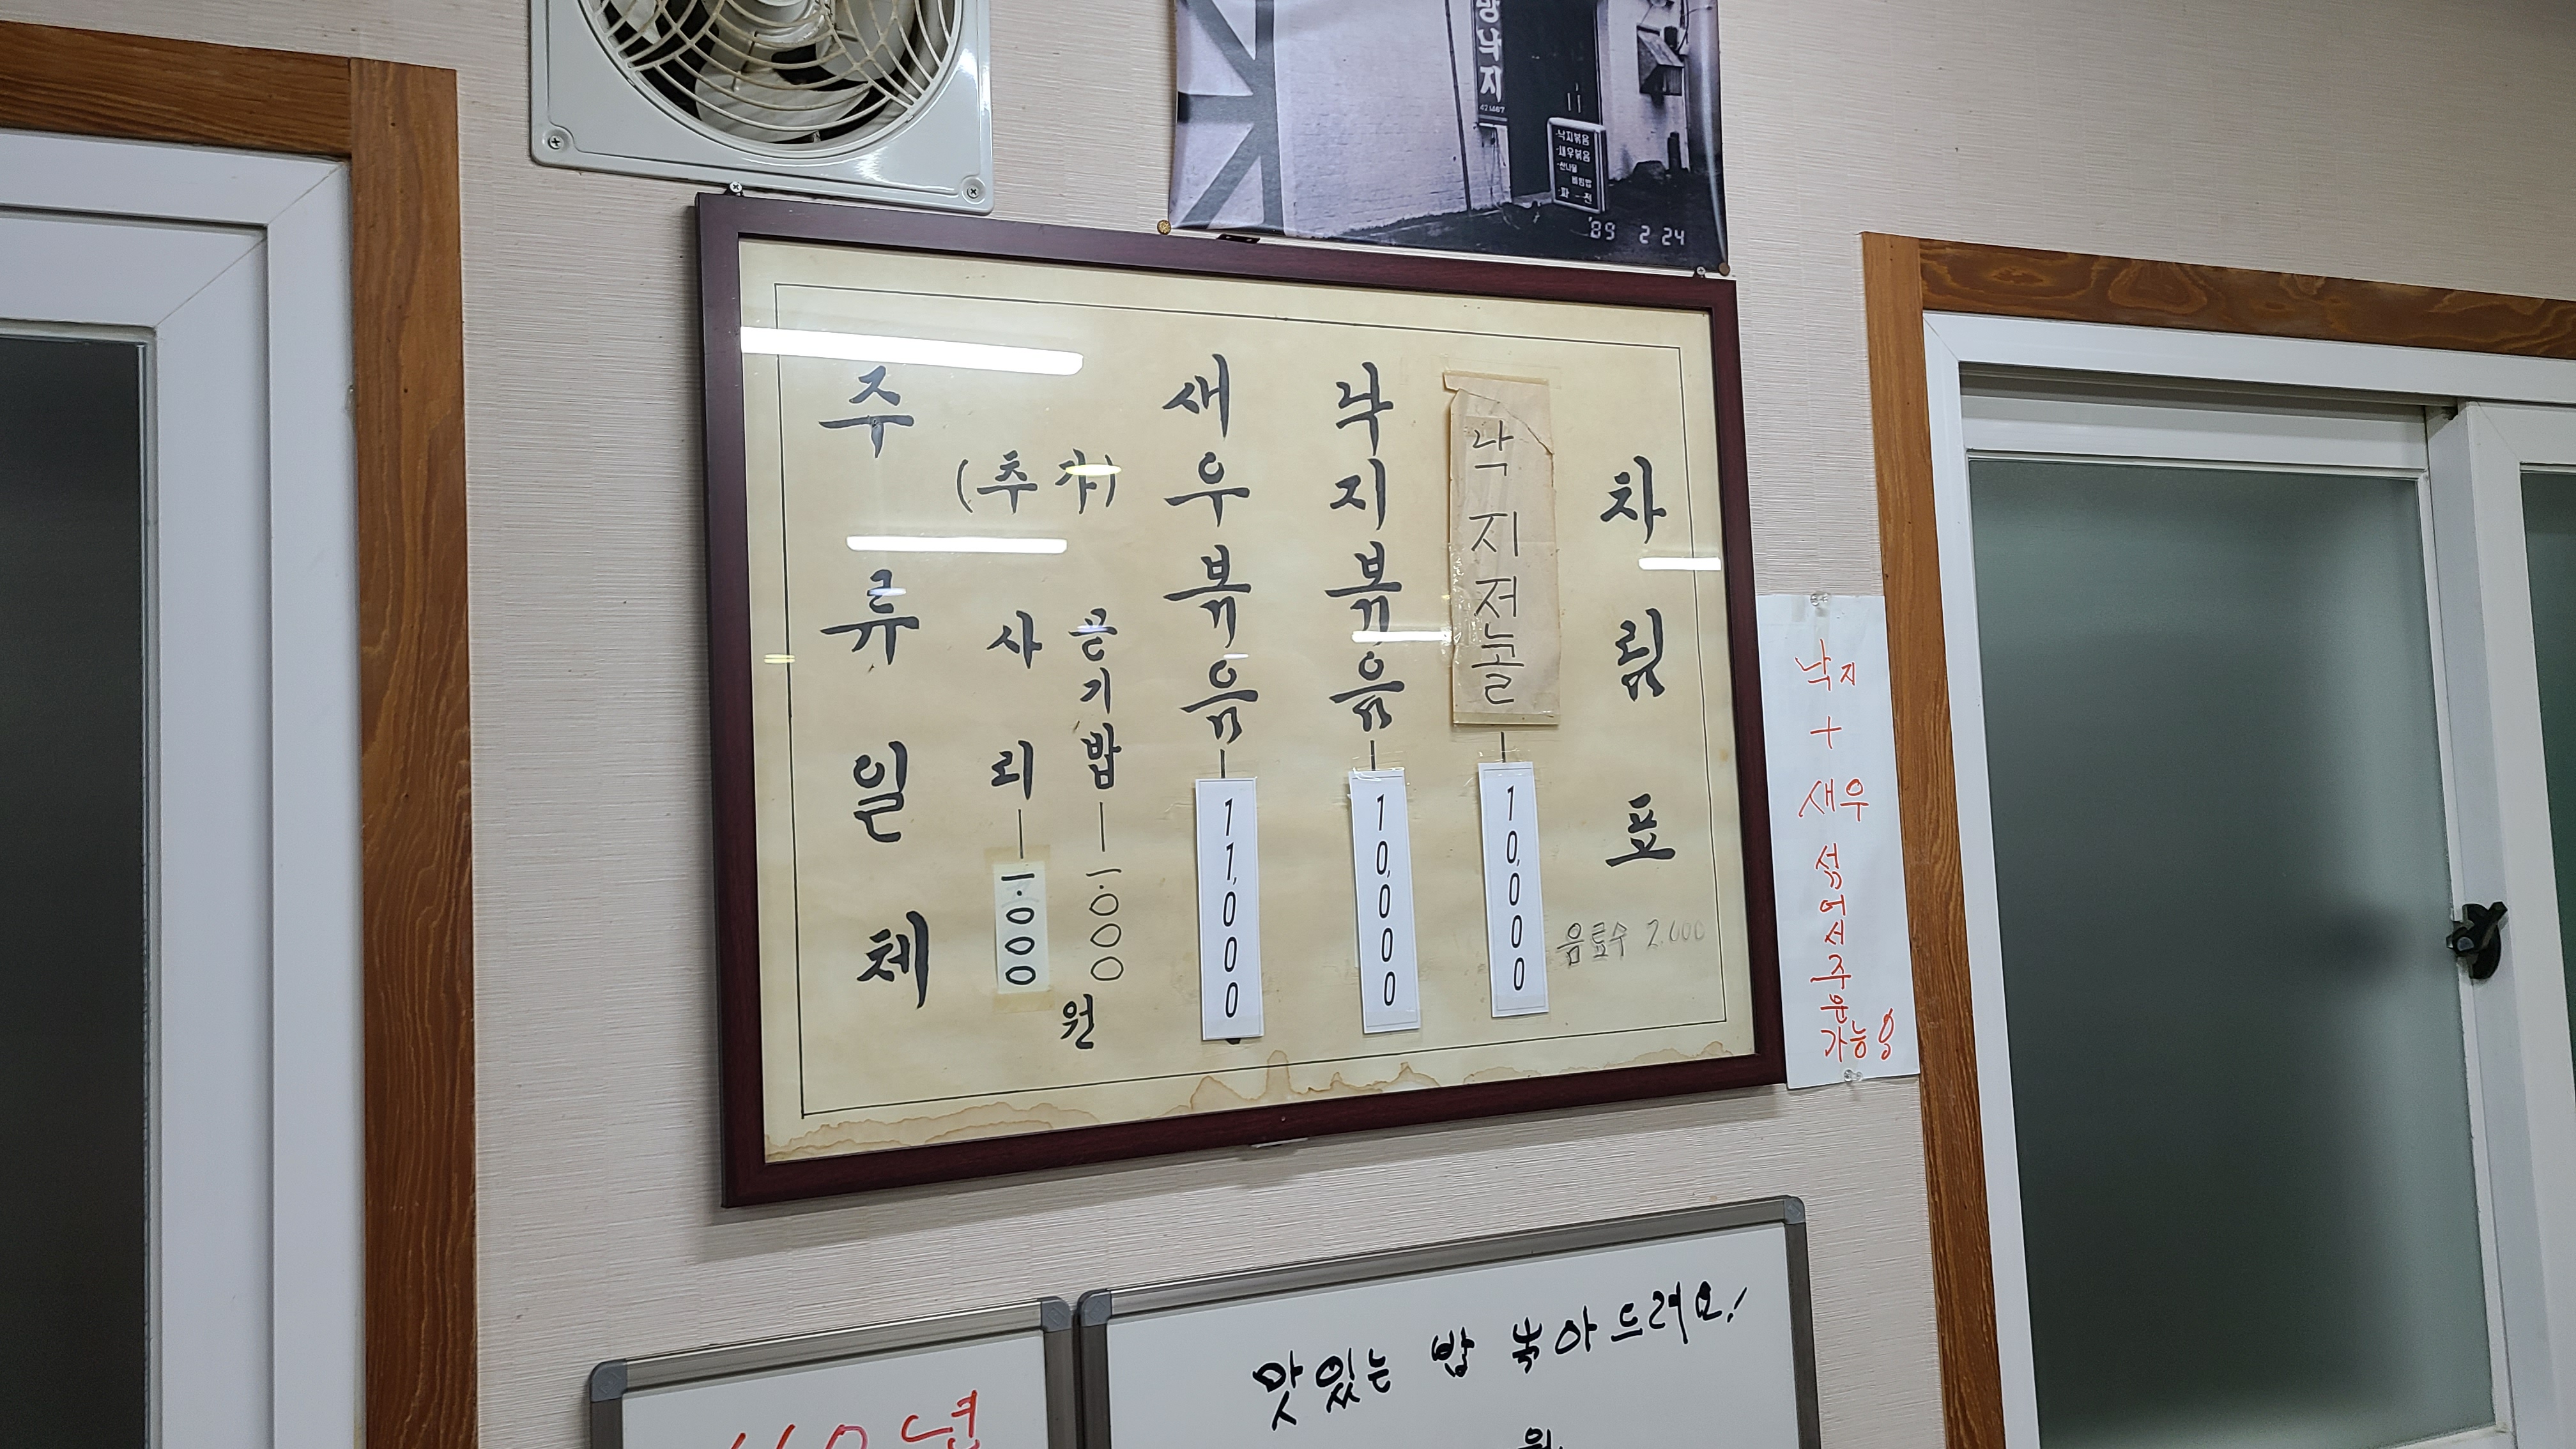 낙지
낙지볶음
새우볶음
파-전
'89 2 24
차림표
음료수 2,000
낙지저골 10,000
낙지볶음 10,000
새우볶음 11,000
(추가)
공기밥 1.000원
사리 1.000
주류일체
낙지
+
새우
섞어서주문
가능응
맛있는 밥 볶아드려요!
년